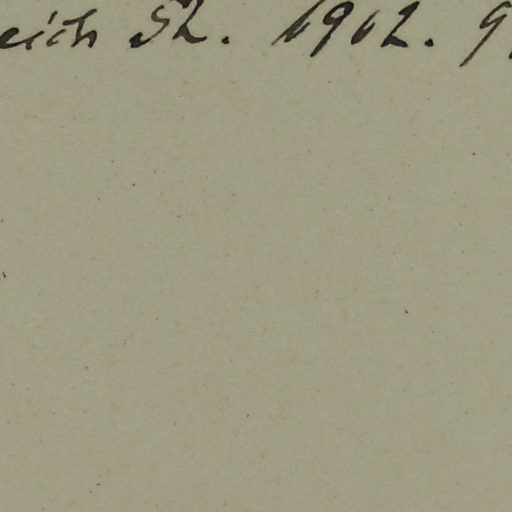 eich 52. 1902. 9